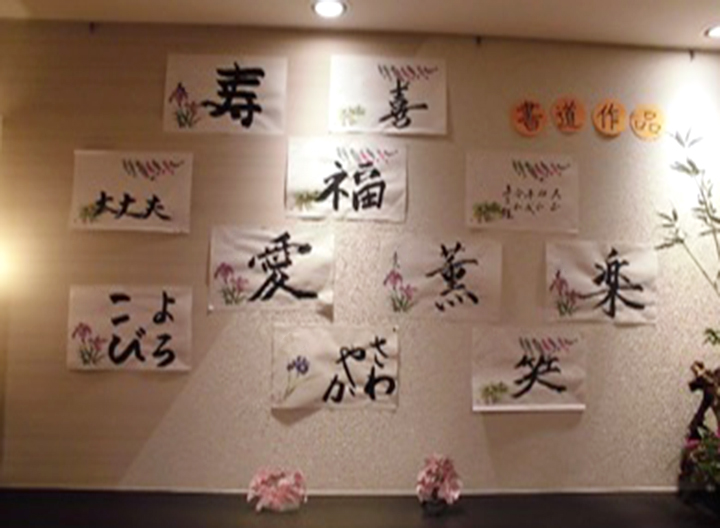 寿
喜
書道作品
大丈夫
福
愛
薫
楽
よろ
こび
さわ
やか
笑